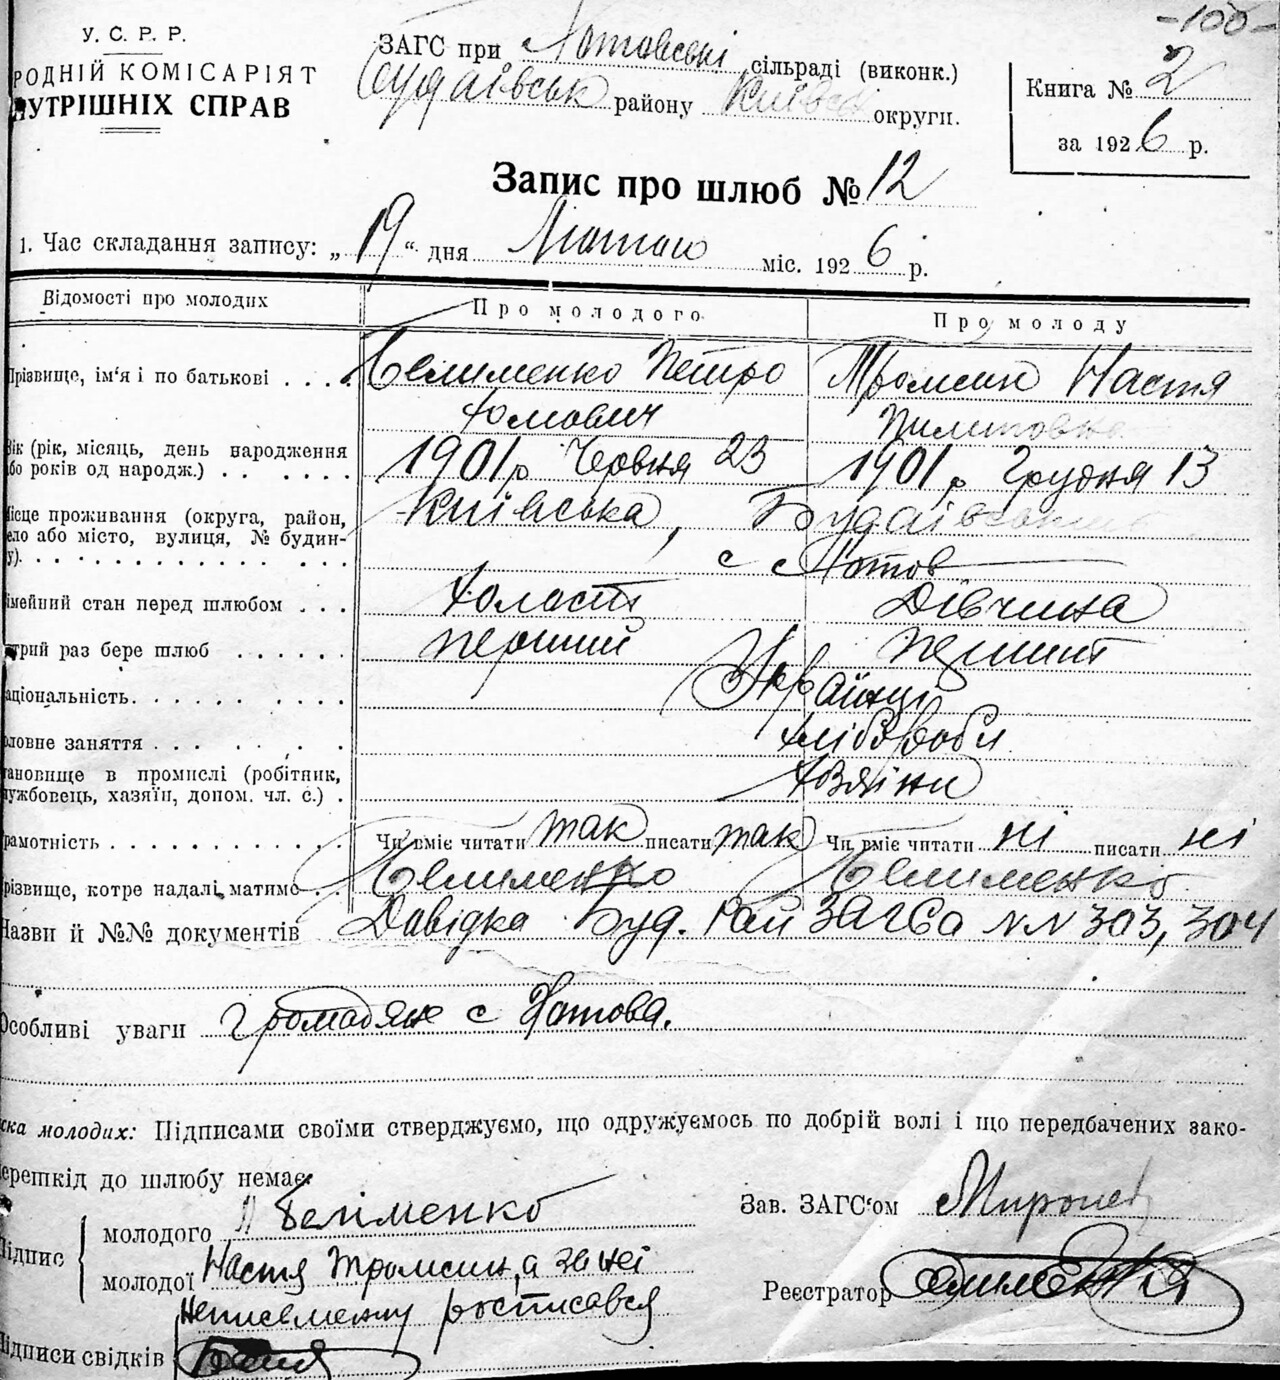 -100-
У. С. Р. Р.
РОДНІЙ КОМІСАРІЯТ
НУТРІШНІХ СПРАВ
ЗАГС при Хотовські сільраді (виконк.)
Будаївськ району Київськ округи.
Книга № 2
за 1926 р.
Запис про шлюб № 12
1. Час складання запису: „19“ дня Лютого міс. 1926 р.
Відомості про молодих
Про молодого
Про молоду
Прізвище, ім'я і по батькові . . . .
Белименко Петро
Хомович
Настя
Пилиповна
Вік (рік, місяць, день народження
або років од народж.) . . . . . .
1901 р Червня 23
1901 р Грудня 13
Місце проживання (округа, район,
село або місто, вулиця, № будин-
у). . . . . . . . . . . . . . .
Київська, Будаївський
с Хотов
імейний стан перед шлюбом . . .
Холост
Дівчина
трий раз бере шлюб . . . . . .
перший
перший
аціональність. . . . . . . . . .
Українці
ловне заняття . . . . . . . .
хлібороби
тановище в промислі (робітник,
ужбовець, хазяїн, допом. чл. с.) .
хазяїни
рамотність . . . . . . . . . . . .
Чи вміє читати так писати так
Чи вміє читати ні писати ні
різвище, котре надалі матиме . .
Белименко
Белименко
Назви й №№ документів Давідка Буд. Рай ЗАГСа NN 303, 304
Особливі уваги Громадяне с Хотова.
ска молодих: Підписами своїми стверджуємо, що одружуємось по добрій волі і що передбачених зако-
ерешкід до шлюбу немає
Підпис
молодого П Беліменко
молодої Настя а за неі
неписьменну росписався
Підписи свідків
Зав. ЗАГС'ом
Реєстратор